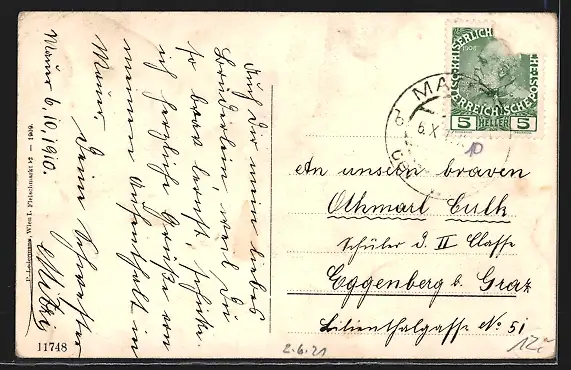 Mauer 6, 10, 1910.
Auch Dir mein liebes
Bruderlein, weil Du
so brav lernst, schicke
ich herzliche Grüße von
meinem Aufenthalt in
Mauer.
Deine Schwester
Mitzi
P. Ledermann, Wien I. Fleischmarkt 12 — 1909.
11748
KAISERLICHE
KÖNIGLICHE
ÖSTERREICHISCHE POST
1908
5 HELLER 5
MA
6.X
10
An unsern braven
Othmarl Culk
Schüler d. II Classe
Eggenberg b. Graz
Lilienthalgasse No 51
2.6.21
12.-